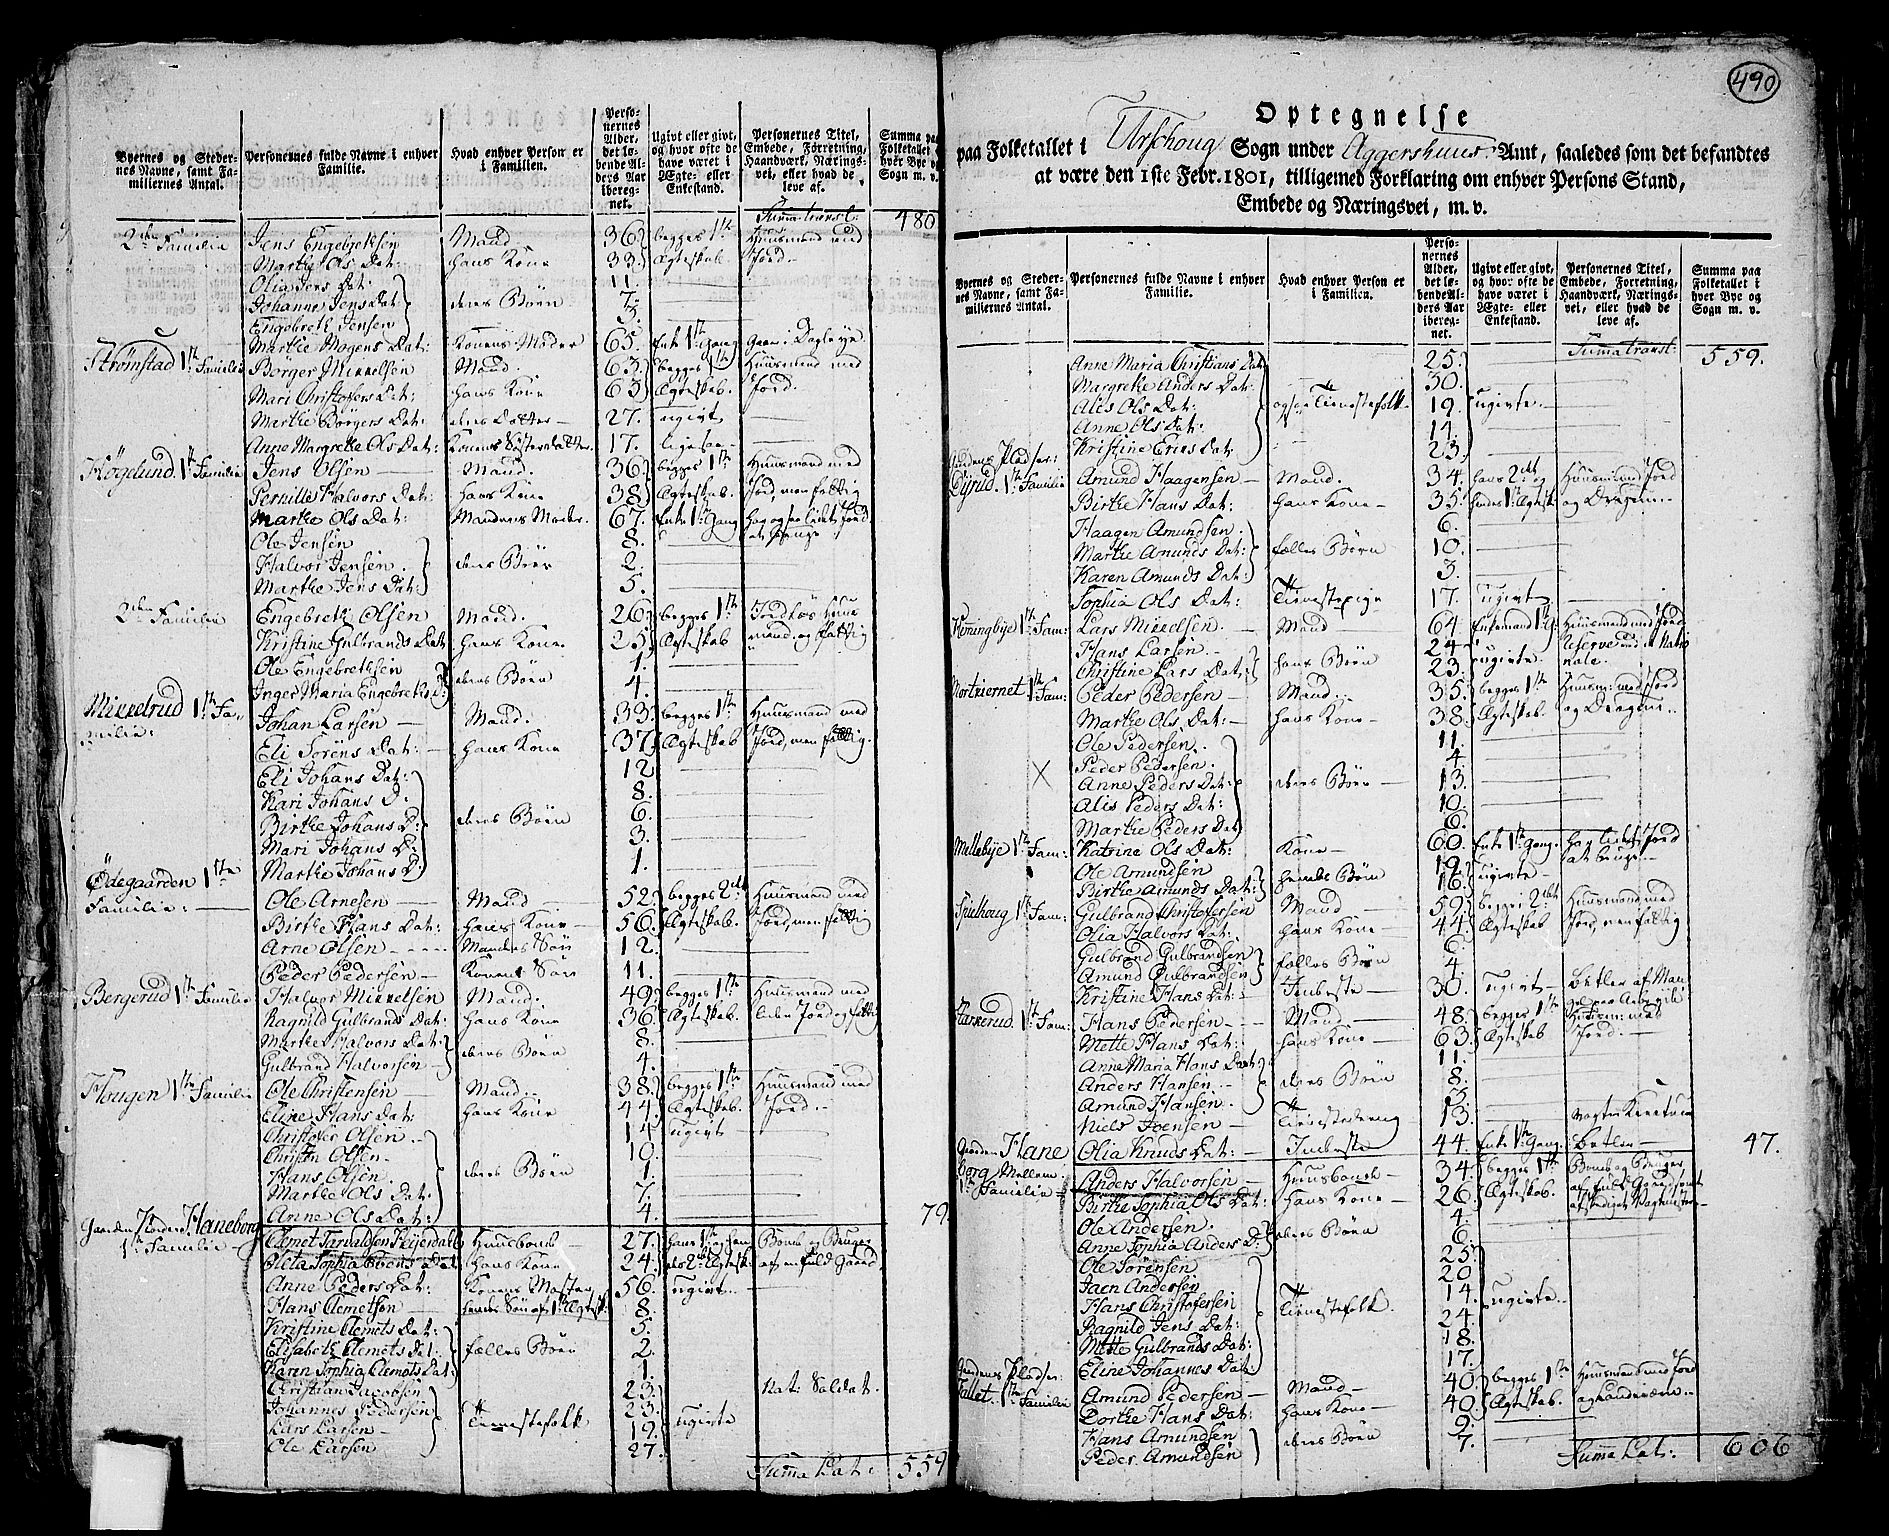 Byernes og Steder-
nes Navne, samt Fa-
miliernes Antal.
Personernes fulde Navne i enhver
Familie.
Hvad enhver Person er
i Familien.
Perso-
nernes
Alder,
det lø-
bende Al-
ders Aar
ibereg-
net.
Ugivt eller givt,
og hvor ofte de
have været i
Ægte- eller
Enkestand.
Personernes Titel,
Embede, Forretning,
Haandværk, Nærings-
vei, eller hvad de
leve af.
Summa paa
Folketallet i
hver Bye og
Sogn m. v.
Summa transl: 480
2den Familie Jens Engebretsen Mand 36 begges 1ste Huusmand med
Marthe Ols Dat: hans Kone 33 Ægteskab Jord.
Olia Jens Dat: 11.
Johannes Jens Dat: deres Børn 7.
Engebreth Jensen 3.
Marthe Mogens Dat: Konens Moder 65. Enke 1ste Gang
Strømstad 1ste Familie Børger Mikkelsen Mand. 63. begges 1ste Huusmand med
Mari Christofers Dat: hans Kone 63 Ægteskab. Jord.
Marthe Børgers Dat: deres Datter 27. ugivt
Anne Margrethe Ols Dat: Konens Søsterdatter. 17. ligesaa
Høgelund. 1ste Familie Jens Olsen Mand. 36. begges 1ste Huusmand med
Pernille Halvors Dat: hans Kone 38 Ægteskab. Jord, men fattig
Marthe Ols Dat: Mandens Moder. 67. Enke 1ste Gang har ogsaa lidet Jord
Ole Jensen 8.
Halvor Jensen. deres Børn 2.
Marthe Jens Dat: 5.
2den Familie Engebreth Olsen Mand. 26. begges 1ste Jordløs Huus
Kristine Gulbrands Dat hans Kone 25 Ægteskab mand, og fattig
Ole Engebrethsen 1.
Inger Maria Engebreths D: deres Børn 4.
Mikkelrud 1ste Fa-
milie: Johan Larsen Mand. 33. begges 1ste Huusmand med
Eli Sørens Dat: hans Kone 37. Ægteskab Jord, men fattig.
Eli Johans Dat: 12
Kari Johans D: 8.
Birthe Johans D: deres Børn 6.
Mari Johans D: 3.
Marthe Johans D: 1.
Ødegaarden 1ste
Familie: Ole Arnesen Mand 52. begges 2det Huusmand med
Birthe Hans Dat: hans Kone 56. Ægteskab. Jord, men fattig
Arne Olsen Mandens Søn 12.
Peder Pedersen Konens Søn 11.
Bergerud 1ste Familie Halvor Mikkelsen Mand. 49. begges 1ste Huusmand med
Ragnild Gulbrands Dat: hans Kone 36. Ægteskab. liden Jord og fattig
Marthe Halvors Dat: deres Børn 8.
Gulbrand Halvorsen 4.
Hougen 1ste Familie Ole Christensen Mand. 38. begges 1ste Huusmand med
Eline Hans Dat: hans Kone 44. Ægteskab. Jord.
Christofer Olsen 14 ugivt
Christen Olsen. 10.
Hans Olsen deres Børn 1.
Marthe Ols Dat: 7.
Anne Ols Dat: 4. 79
Gaarden Haneborg
1ste Familie Clemet Huusbond 27.
Sophia hans Kone 24. af en fuld Gaard
Anne Peders Dat: 56. ugivt
Hans Clemetsen 8.
Kristine Clemets Dat: 5.
Elisabeth Clemets Dat: fælles Børn 2.
Karen Sophia Clemets Dat: 1.
Christian Jacobsen 23. Nat: Saldat.
Johannes Pedersen 23.
Lars Larsen Tienestefolk 19. ugivte
Ole Larsen 27.
Summa Lat: 559
490
Optegnelse
paa Folketallet i Urschoug Sogn under Aggershuus Amt, saaledes som det befandtes
at være den 1ste Febr. 1801, tilligemed Forklaring om enhver Persons Stand,
Embede og Næringsvei, m. v.
Byernes og Steder-
nes Navne, samt Fa-
miliernes Antal.
Personernes fulde Navne i enhver
Familie.
Hvad enhver Person er
i Familien.
Perso-
nernes
Alder,
det lø-
bende Al-
ders Aar
ibereg-
net.
Ugivt eller givt,
og hvor ofte de
have været i
Ægte- eller
Enkestand.
Personernes Titel,
Embede, Forretning,
Haandværk, Nærings-
vei, eller hvad de
leve af.
Summa paa
Folketallet i
hver Bye og
Sogn m. v.
Summa transl: 559.
Anne Maria Christians Dat 25.
Margrethe Anders Dat: 30.
Alis Ols Dat: ogsaa Tienestefolk 19. ugivte
Anne Ols Dat: 14.
Kristine Erics Dat: 23.
Gaardens Pladser:
1ste Familie Amund Haagensen Mand. 34. hans 2det og Huusmand med Jord
Birthe Hans Dat: hans Kone 35. hendes 1ste Ægtesk og Dragon
Haagen Amundsen 6.
Marthe Amunds Dat: fælles Børn 10.
Karen Amunds Dat: 3.
Sophia Ols Dat: Tienestepige 17. ugivt
1ste Fam: Lars Mikkelsen. Mand 64 Enkemand 1ste G. Huusmand med Jord
Hans Larsen. 24 Reserve ved de Natio
Christine Lars Dat: hans Børn 23 ugivte. nale.
1ste Fam: Peder Pedersen Mand. 35. begges 1ste Huusm: med Jord
Marthe Ols Dat: hans Kone 38. Ægteskab. og Dragon
Ole Pedersen. 11.
Peder Pedersen. 4
X Anne Peders Dat: deres Børn 13.
Alis Peders Dat: 10.
Marthe Peders Dat 6.
Mellebye 1ste Fam: Katrine Ols Dat: Kone 60. Enke 1ste Gang. har lidet Jord
Ole Amundsen 19. at bruge
Birthe Amunds Dat: hendes Børn 16. ugivte
1ste Fam: Gulbrand Christofersen Mand 59. begges 2det Huusmand med
Olia Halvors Dat: hans Kone 44. Ægteskab Jord, men fattig
Gulbrand Gulbrandsen 6.
Amund Gulbrandsen fælles Børn 4.
Kristine Hans Dat: Inderste 30. ugivt Betler af Man
1ste Fam: Hans Pedersen Mand 48. begges 1ste
Mette Hans Dat: hans Kone 63. Ægteskab Jord.
Anne Maria Hans Dat 11.
Anders Hansen deres Børn 8.
Amund Hansen. 3.
Niels Joensen Tienestedreng 13.
Olia Knuds Dat: Inderste 44. Enke 1ste Gang. Betler 47.
Gaarden Hane
borg Mellem
1ste Familie Anders Halvorsen Huusbonde 34. begges 1ste Bonde og Bruger
Birthe Sophia Ols Dat: hans Kone 26. Ægteskab.
Ole Andersen 4.
Anne Sophia Anders D: deres Børn 6.
Ole Sørensen 25.
Joen Andersen 20
Hans Christofersen Tienestefolk. 14. ugivte
Ragnild Jens Dat: 24.
Mette Gulbrands Dat: 18.
Eline Johannes Dat: 17.
Gaardens Pladser:
1ste Familie Amund Pedersen Mand 40. begges 1ste Huusmand med Jord
Dorthe Hans Dat: hans Kone 40. Ægteskab.
Hans Amundsen 9.
Peder Amundsen deres Børn 7.
Summa Lat: 606